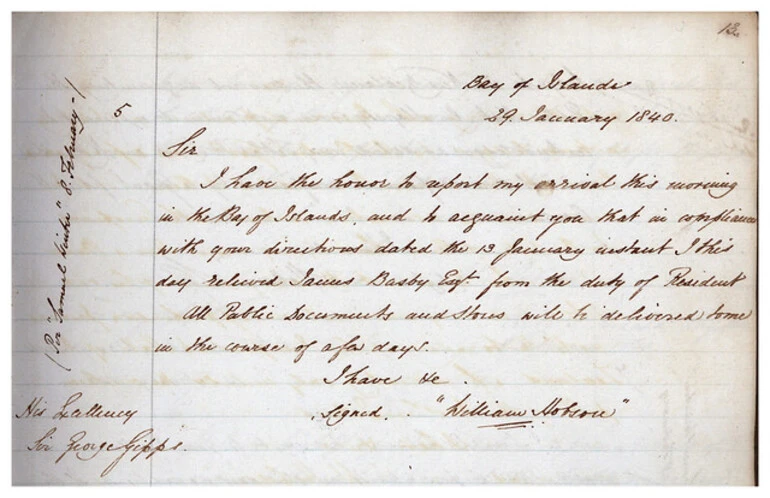 13.
Bay of Islands
29. January 1840.
5
Sir
I have the honor to report my arrival this morning
in the Bay of Islands, and to acquaint you that in compliance
with your directions dated the 13 January instant I this
day relieved James Busby Esqr. from the duty of Resident
All Public Documents and Stores will be delivered to me
in the course of a few days.
I have &c.
signed. "William Hobson"
His Excellency
Sir George Gipps.
(Per "Samuel Winter" 8. February -)